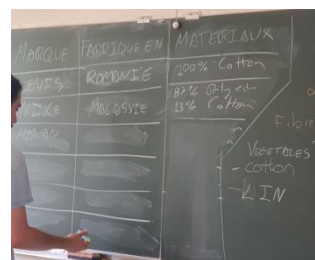 MARQUE FABRIQUE EN MATERIAUX
LEVIS ROMANIE 100% Cotton
NIKE MOLDSVIE 87%
13% Cotton
Fibre
VEGETALES
- Cotton
- LIN